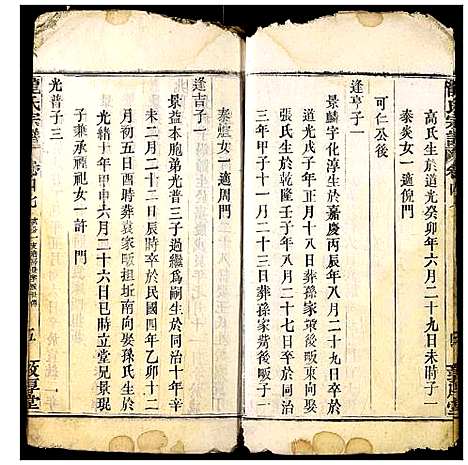 高氏生於道光癸卯年六月二十九日未時子一
泰炎女一適倪門
可仁公後
逢亨子一
景麟字化淳生於嘉慶丙辰年八月二十二日歿於
道光戊子年正月十八日葬孫家嶺後畈東向娶
張氏生於乾隆壬子年八月二十七日歿於同治
三年甲子十一月二十三日葬孫家嶺後畈一子
泰煊女一適周門
逢吉子一
景益本胞弟光普三子過繼爲嗣生於同治十年辛
未二月二十二日辰時卒於民國四年乙卯十二
月初五日酉時葬袁家畈祖坵南向娶孫氏生於
同治十一年壬申六月二十六日巳時立堂兄景琨
子兼承禋祀女一許門
光普子三
龍氏宗譜
卷四七
五
敦厚堂